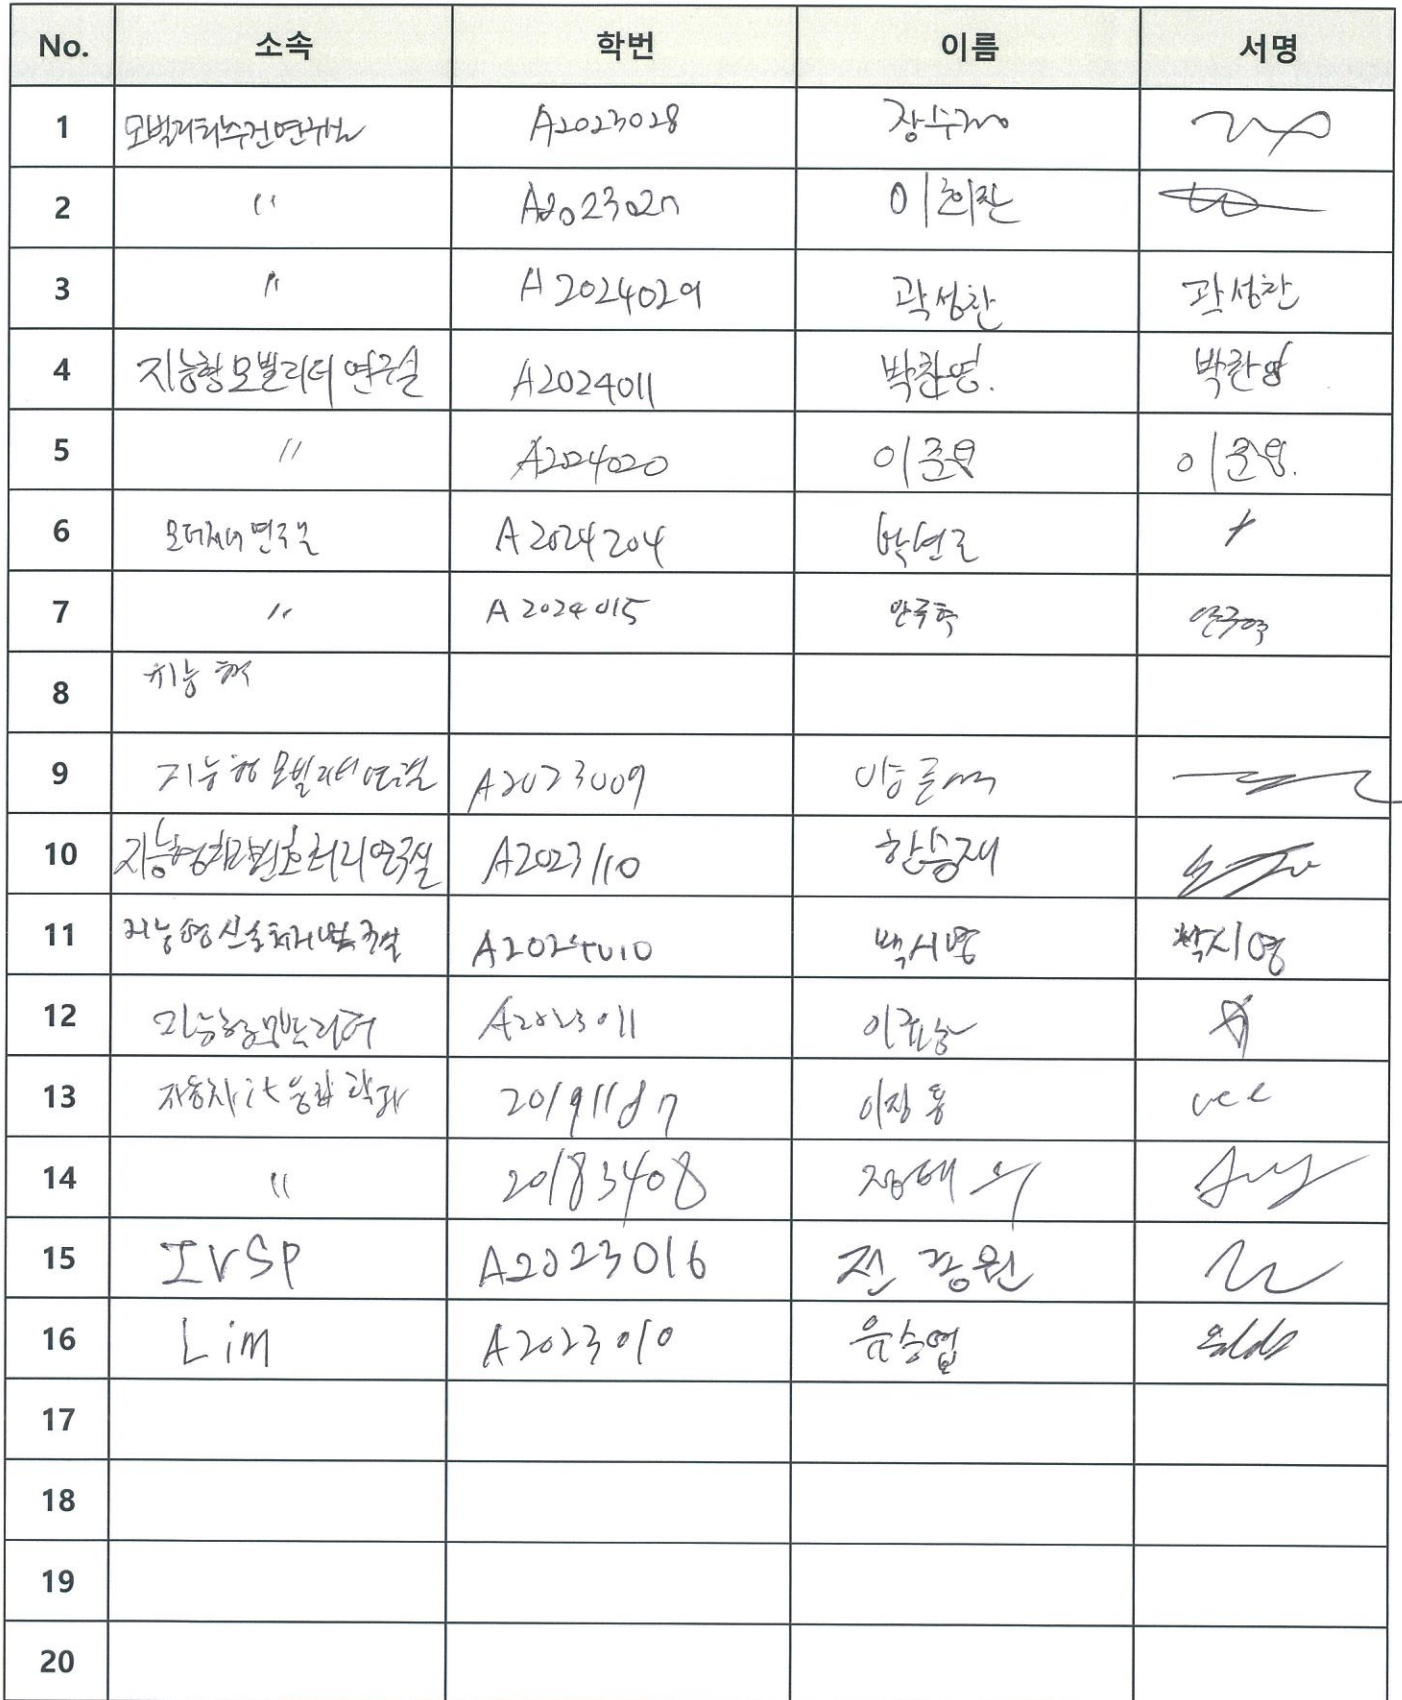 No. 소속 학번 이름 서명
1 A2023028
2 〃 A2023027 이희찬
3 〃 A2024029 곽성찬 곽성찬
4 지능형모빌리티 연구실 A2024011 박찬영. 박찬영
5 〃 A2024020 이준영 이준영.
6 A2024204
7 〃 A2024015 안국혁
8 지능형
9 지능형 모빌리티연구실 A2023009
10 A2023110 한승재
11 지능형신호처리연구실 A2024010 백시영 백시영
12 A2023011
13 자동차it융합학과 20191187 이장통
14 〃 20183408
15 IVSP A2023016 전광원
16 Lim A2023010 유승엽
17
18
19
20